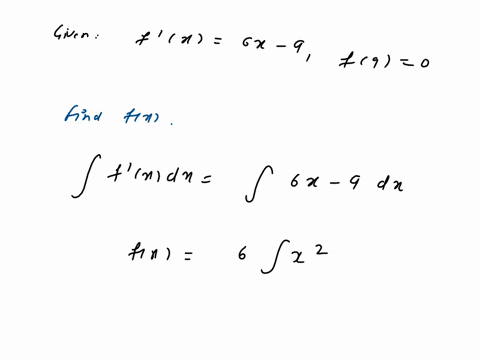 Given: f'(x) = 6x - 9, f(9) = 0
find f(x).
∫ f'(x) dx = ∫ 6x - 9 dx
f(x) = 6 ∫ x 2